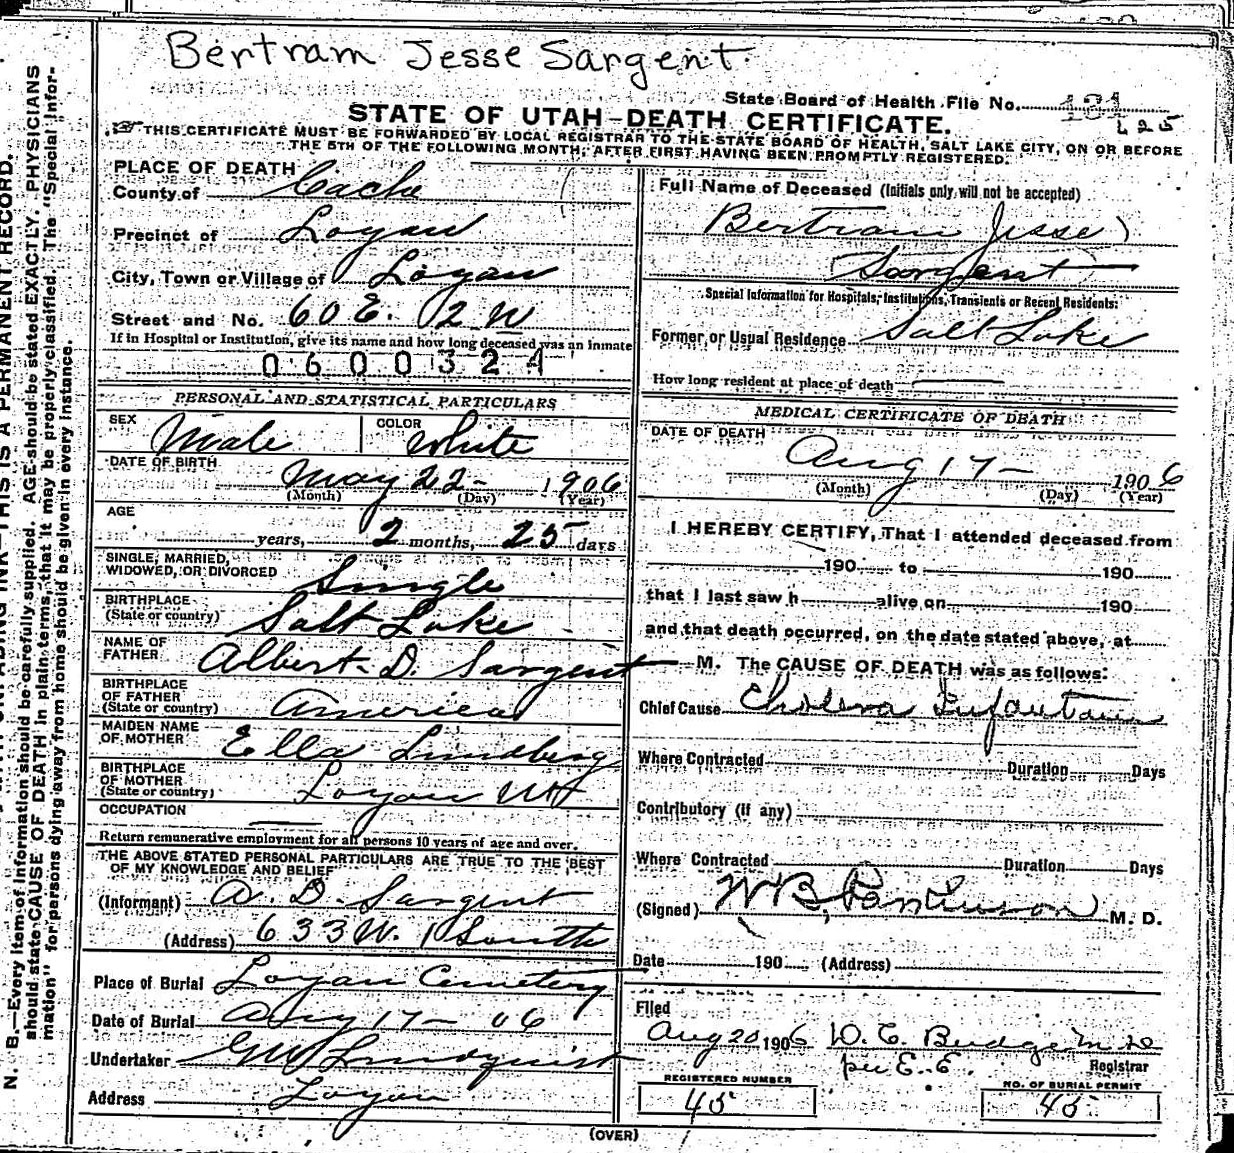 Bertram Jesse Sargent.
State Board of Health File No. 181
625
STATE OF UTAH—DEATH CERTIFICATE.
THIS CERTIFICATE MUST BE FORWARDED BY LOCAL REGISTRAR TO THE STATE BOARD OF HEALTH, SALT LAKE CITY, ON OR BEFORE
THE 5TH OF THE FOLLOWING MONTH, AFTER FIRST HAVING BEEN PROMPTLY REGISTERED.
PLACE OF DEATH
County of Cache
Precinct of Logan
City, Town or Village of Logan
Street and No. 60 E. 2 W
If in Hospital or Institution, give its name and how long deceased was an inmate
0600324
PERSONAL AND STATISTICAL PARTICULARS
SEX Male COLOR White
DATE OF BIRTH May 22 - 1906
(Month) (Day) (Year)
AGE
years, 2 months, 25 days
SINGLE, MARRIED,
WIDOWED, OR DIVORCED Single
BIRTHPLACE
(State or country) Salt Lake
NAME OF
FATHER Albert D. Sargent
BIRTHPLACE
OF FATHER
(State or country) America
MAIDEN NAME
OF MOTHER Ella Lundberg
BIRTHPLACE
OF MOTHER
(State or country) Logan Ut
OCCUPATION
Return remunerative employment for all persons 10 years of age and over.
THE ABOVE STATED PERSONAL PARTICULARS ARE TRUE TO THE BEST
OF MY KNOWLEDGE AND BELIEF
(Informant) A. D. Sargent
(Address) 633 W. 1 South
Place of Burial Logan Cemetery
Date of Burial Aug 17 - 06
Undertaker GW Lindquist
Address Logan
Full Name of Deceased (Initials only will not be accepted)
Bertram Jesse
Sargent
Special Information for Hospitals, Institutions, Transients or Recent Residents:
Former or Usual Residence Salt Lake
How long resident at place of death
MEDICAL CERTIFICATE OF DEATH
DATE OF DEATH
Aug 17 - 1906
(Month) (Day) (Year)
I HEREBY CERTIFY, That I attended deceased from
190 to 190
that I last saw h alive on 190
and that death occurred, on the date stated above, at
M. The CAUSE OF DEATH was as follows:
Chief Cause Cholera Infantum
Where Contracted Duration Days
Contributory (if any)
Where Contracted Duration Days
(Signed) W B, Parkinson M. D.
Date 190 (Address)
Filed
Aug 20 1906 D. C. Budge M D
per E. E. Registrar
REGISTERED NUMBER
45
NO. OF BURIAL PERMIT
45
(OVER)
N. B.—Every item of information should be carefully supplied. AGE should be stated EXACTLY. PHYSICIANS
should state CAUSE OF DEATH in plain terms, that it may be properly classified. The "Special Infor-
mation" for persons dying away from home should be given in every instance.
THIS IS A PERMANENT RECORD.